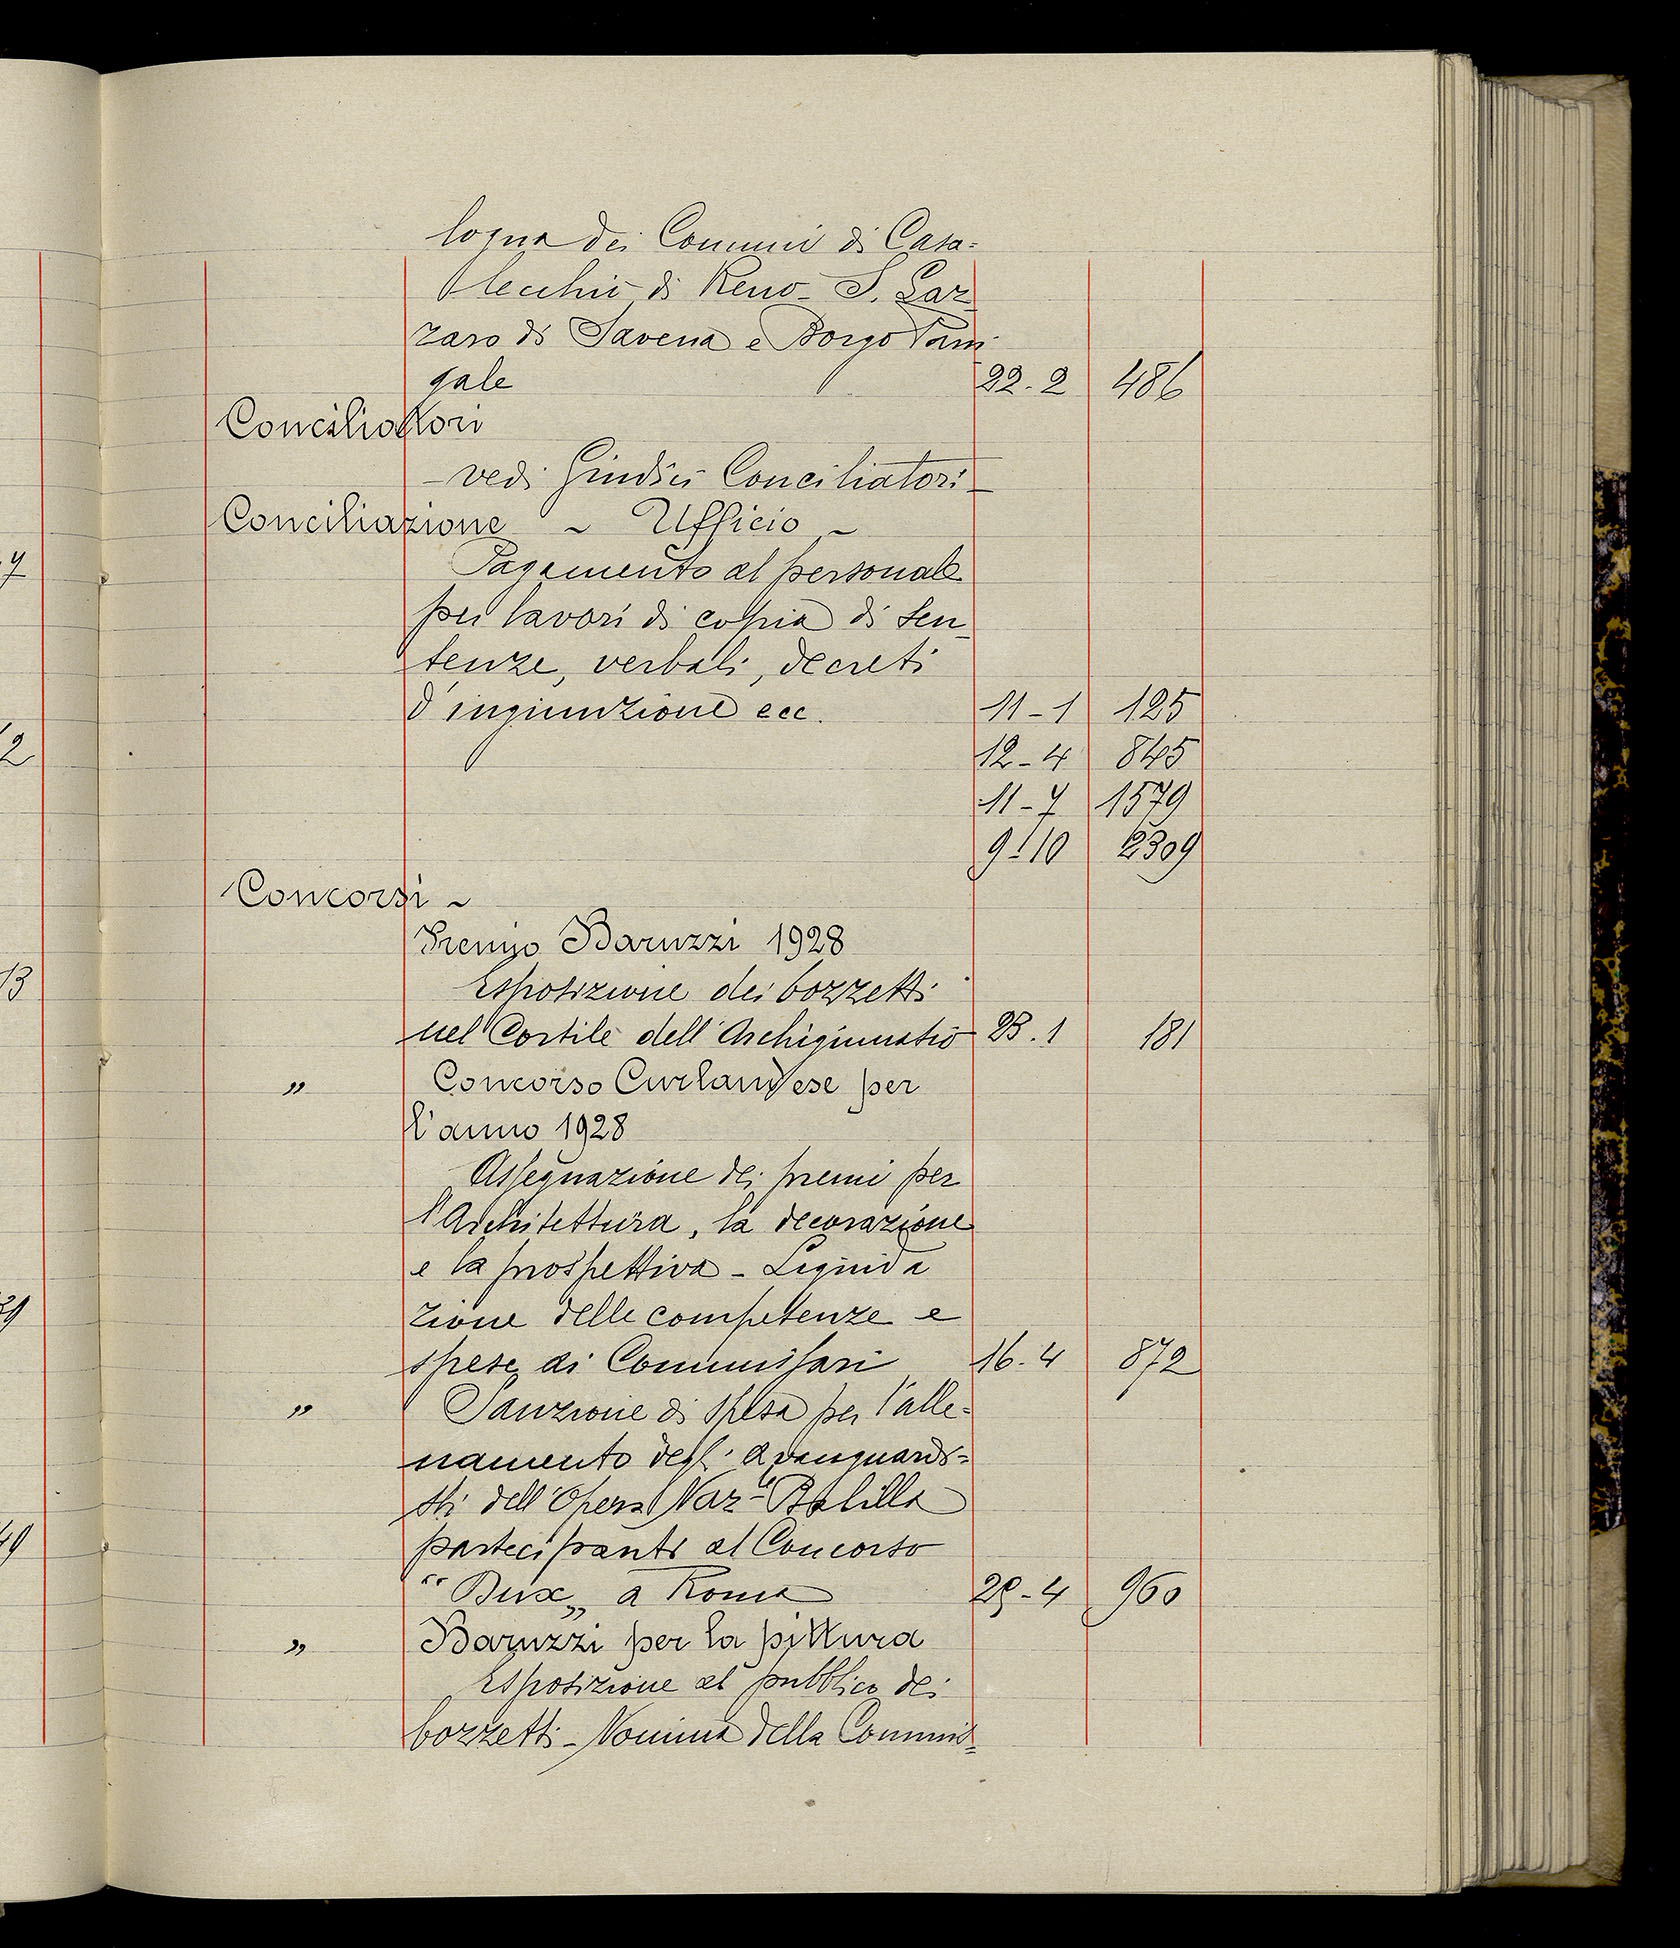 logna dei Comuni di Casa=
lecchio di Reno - S. Laz-
zaro di Savena e Borgo Pani-
gale 22.2 486
Conciliatori
- vedi Giudici Conciliatori -
Conciliazione ~ Ufficio ~
Pagamento al personale
per lavori di copia di sen-
tenze, verbali, decreti
d'ingiunzione ecc. 11-1 125
12-4 845
11-7 1579
9-10 2309
Concorsi ~
Premio Baruzzi 1928
Esposizione dei bozzetti
nel Cortile dell'Archiginnasio 23.1 181
" Concorso Curlandese per
l'anno 1928
Assegnazione dei premi per
l'Architettura, la decorazione
e la prospettiva - Liquida
zione delle competenze e
spese ai Commissari 16.4 872
" Sanzione di spesa per l'alle=
namento degli avanguardi=
sti dell'Opera Naz. Balilla
partecipanti al Concorso
"Dux„ a Roma 4 960
" Baruzzi per la pittura
Esposizione al pubblico dei
bozzetti - Nomina della Commis=
7
2
13
29
49